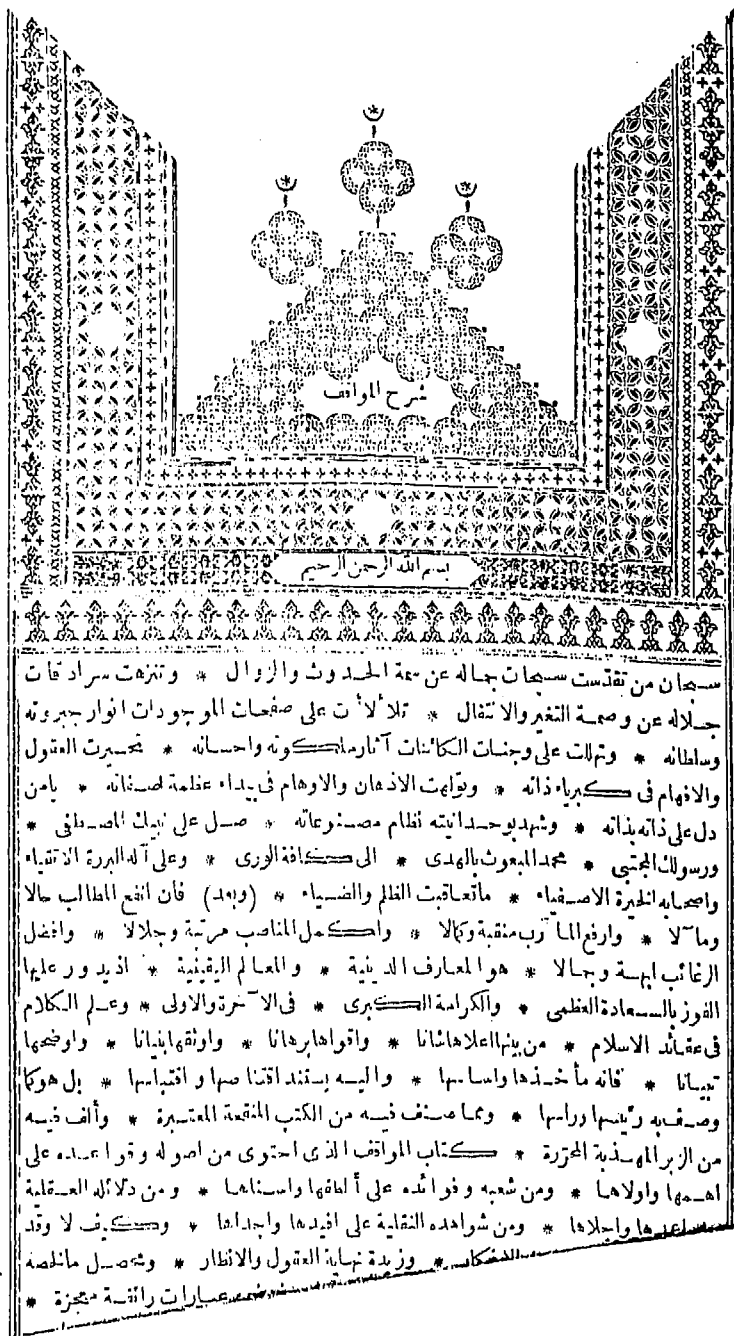 شرح المواقف
بسم الله الرحمن الرحيم
سبحان من تقدست سبحات جماله عن سمة الحدوث والزوال * وتنزهت سرادقات
جلاله عن وصمة التغير والانتقال * تلألأت على صفحات الموجودات انوار جبروته
وسلطانه * وتهللت على وجنات الكائنات آثار ملكوته واحسانه * تحيرت العقول
والافهام فى كبرياء ذاته * وتولهت الاذهان والاوهام فى بيداء عظمة صفاته * يامن
دل على ذاته بذاته * وشهد بوحدانيته نظام مصنوعاته * صل على نبيك المصطفى *
ورسولك المجتبى * محمد المبعوث بالهدى * الى كافة الورى * وعلى آله البررة الاتقياء
واصحابه الخيرة الاصفياء * ماتعاقبت الظلم والضياء * (وبعد) فان انفع المطالب حالا
ومآلا * وارفع المآرب منقبة وكمالا * واكمل المناصب مرتبة وجلالا * وافضل
الرغائب ابهة وجمالا * هو المعارف الدينية * والمعالم اليقينية * اذ يدور عليها
الفوز بالسعادة العظمى * والكرامة الكبرى * فى الآخرة والاولى * وعلم الكلام
فى عقائد الاسلام * من بينها اعلاها شانا * واقواها برهانا * واوثقها بنيانا * واوضحها
تبيانا * فانه مأخذها واساسها * واليه يستند اقتناصها واقتباسها * بل هو كما
وصف به رئيسها وراسها * ومما صنف فيه من الكتب المنقحة المعتبرة * وألف فيه
من الزبر المهذبة المحررة * كتاب المواقف الذى احتوى من اصوله وقواعده على
اهمها واولاها * ومن شعبه وفوائده على ألطفها واسناها * ومن دلائله العقلية
واجلاها * ومن شواهده النقلية على افيدها واجداها * وكيف لا وقد
الافكار * وزبدة نهاية العقول والانظار * ومحصل مالخصه
عبارات رائقة معجزة *